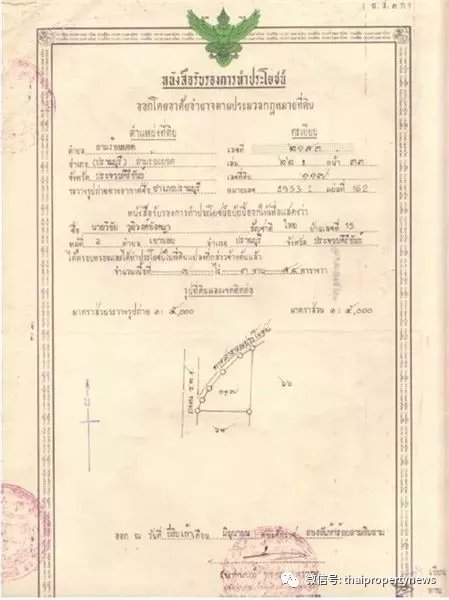 ( น.ส.๓ ก )
หนังสือรับรองการทำประโยชน์
ออกโดยอาศัยอำนาจตามประมวลกฎหมายที่ดิน
ตำแหน่งที่ดิน ทะเบียน
ตำบล สามร้อยยอด เลขที่
อำเภอ (ปราณบุรี) สามร้อยยอด เล่ม ๒๒ ช หน้า ๓๓
จังหวัด ประจวบคีรีขันธ์ เลขที่ดิน ๑๑๗
ระวางรูปถ่ายทางอากาศชื่อ อำเภอปราณบุรี หมายเลข 4933 I แผ่นที่ 162
หนังสือรับรองการทำประโยชน์ฉบับนี้ออกให้เพื่อแสดงว่า
ชื่อ นายวิชัย สัญชาติ ไทย บ้านเลขที่ 15
หมู่ที่ ๑ ตำบล อำเภอ ปราณบุรี จังหวัด ประจวบคีรีขันธ์
ได้ครอบครองและได้ทำประโยชน์ในที่ดินแปลงที่กล่าวข้างต้นแล้ว
จำนวนเนื้อที่ ไร่ ๓ งาน ๕๔ ตารางวา
รูปที่ดินและเขตติดต่อ
มาตราส่วนระวางรูปถ่าย ๑: ๕,๐๐๐ มาตราส่วน ๑: ๕,๐๐๐
ทางสาธารณประโยชน์
๑๑๗
๖๖
๖๙
ออก ณ วันที่ ยี่สิบเก้า เดือน มิถุนายน พุทธศักราช สองพันห้าร้อยสามสิบสาม
微信号: thaipropertynews